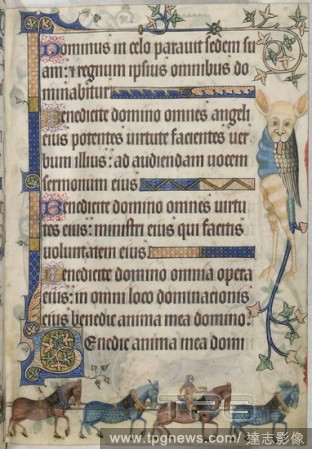 Dominus in celo parauit sedem su
am: et regnum ipsius omnibus do
minabitur
Benedicite domino omnes angeli
eius potentes uirtute facientes uer
bum illius: ad audiendam uocem
sermonum eius
Benedicite domino omnes uirtu
tes eius: ministri eius qui facitis
uoluntatem eius
Benedicite domino omnia opera
eius: in omni loco dominacionis
eius benedic anima mea domino.
Benedic anima mea domi
TPG
www.tpgnews.com/達志影像